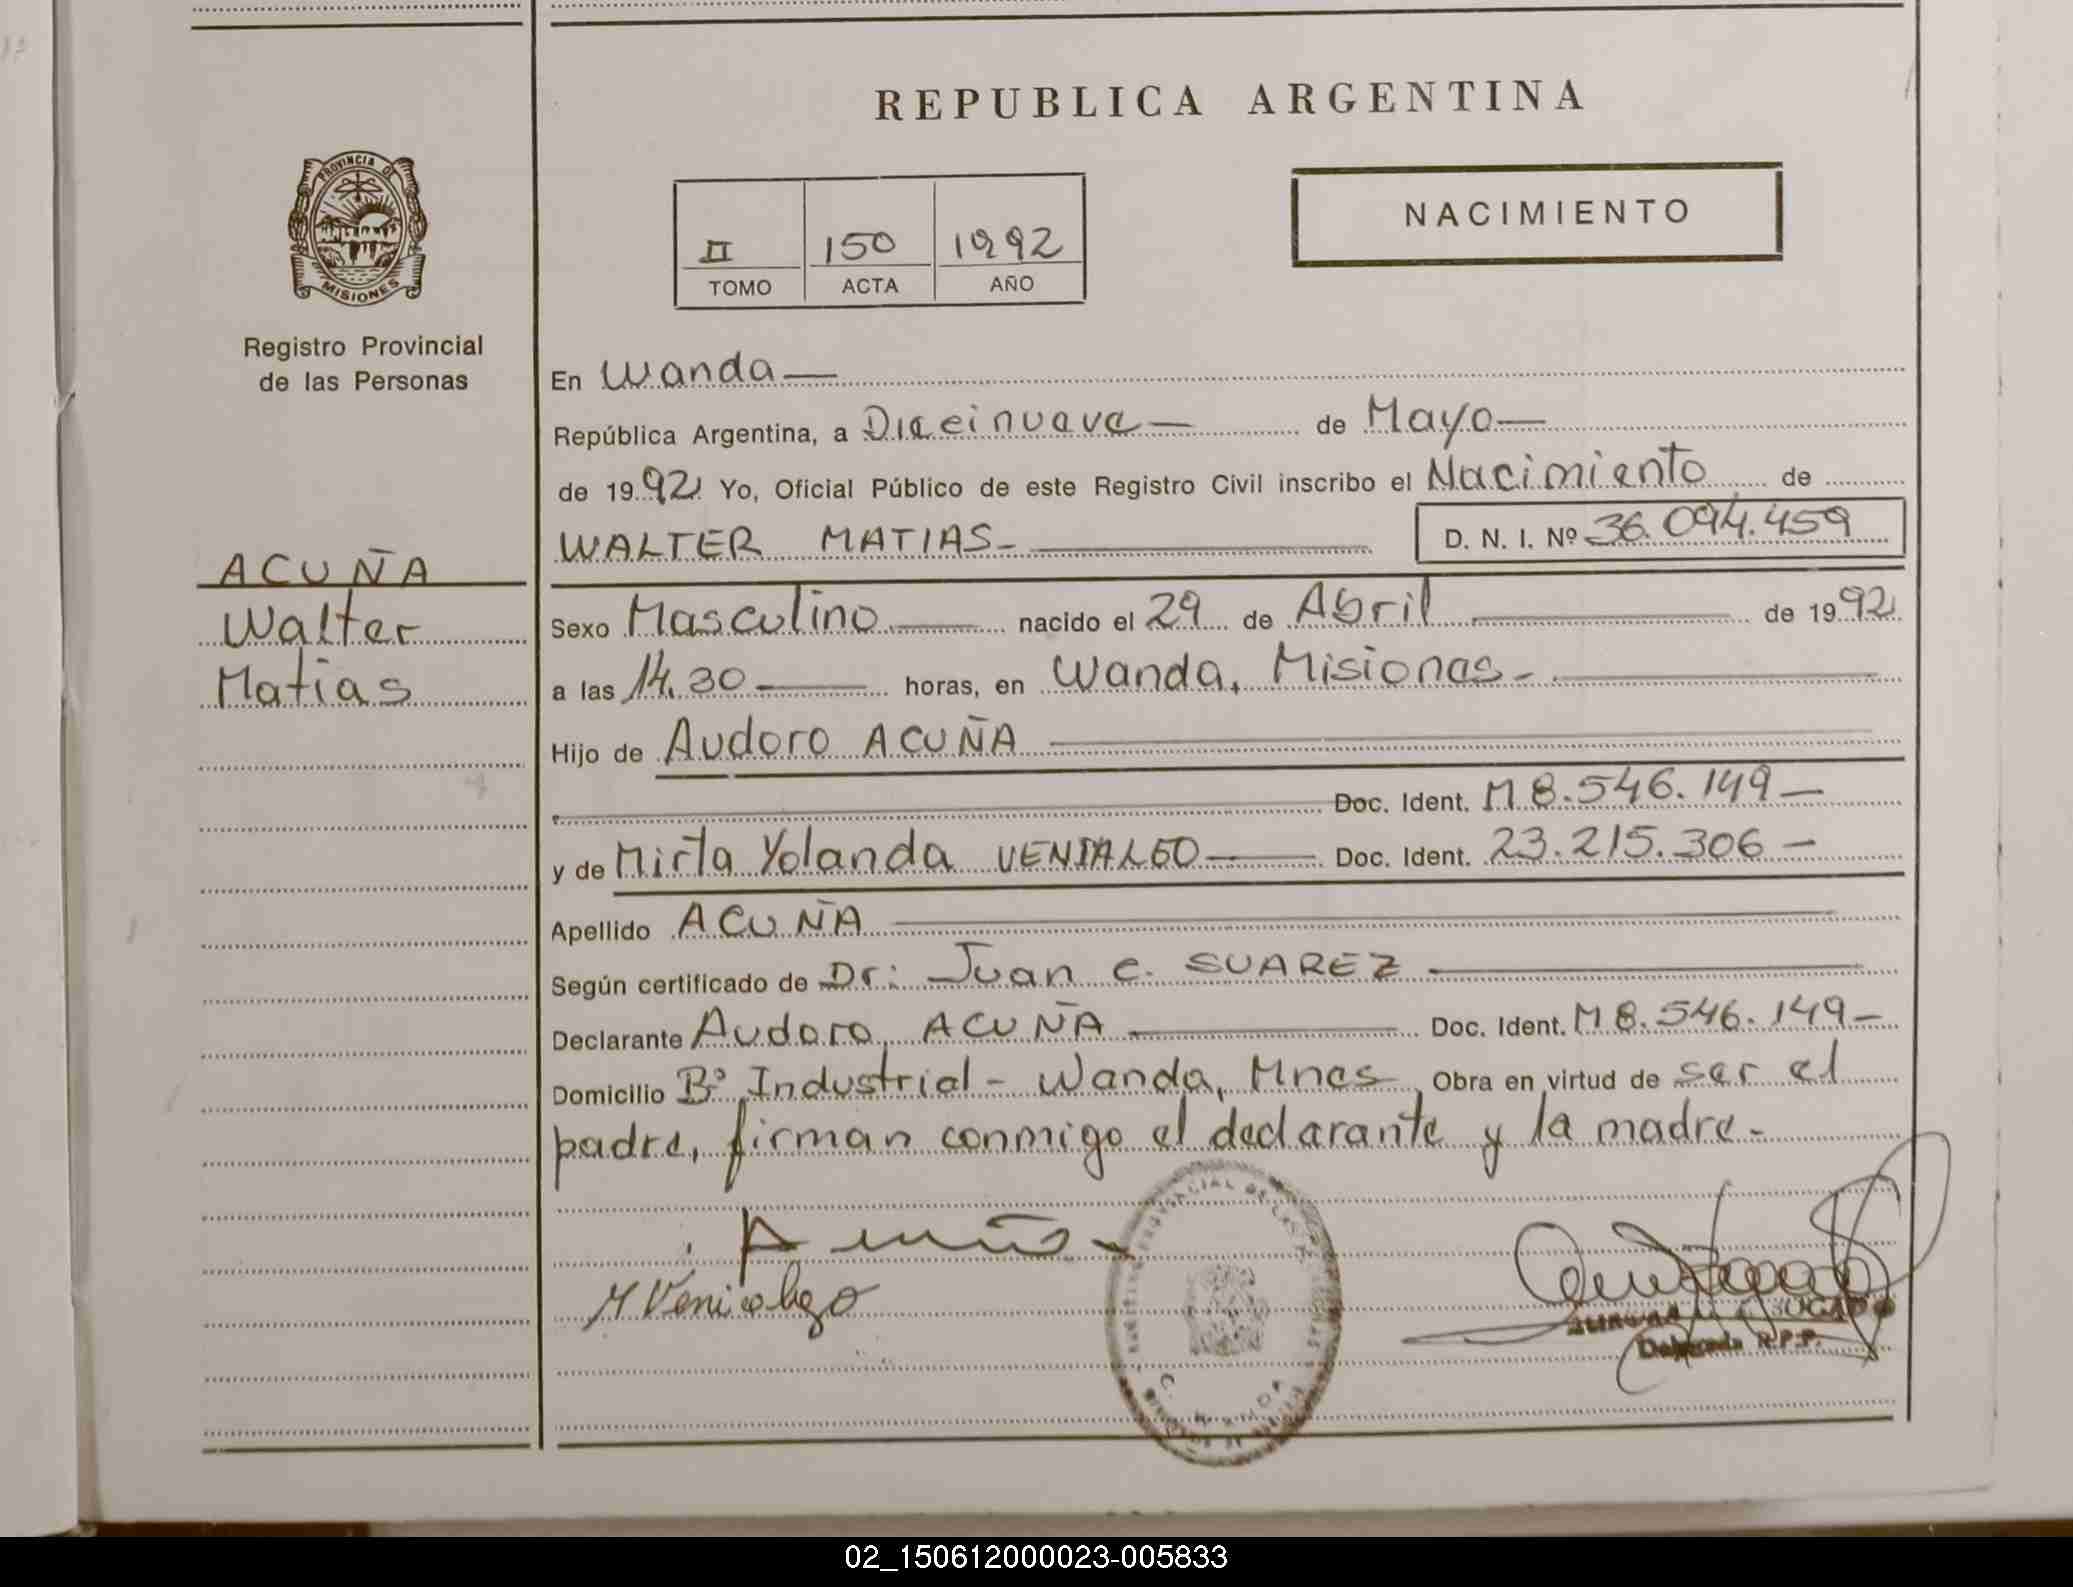 REPUBLICA ARGENTINA
PROVINCIA DE
MISIONES
Registro Provincial
de las Personas
II 150 1992
TOMO ACTA AÑO
NACIMIENTO
ACUÑA
Walter
Matias
En Wanda—
República Argentina, a Dieeinueve— de Mayo—
de 1992 Yo, Oficial Público de este Registro Civil inscribo el Nacimiento de
WALTER MATIAS- D. N. I. Nº 36.094.459
Sexo Masculino nacido el 29 de Abril de 1992
a las 14.30 horas, en Wanda, Misiones-
Hijo de Audoro ACUÑA
Doc. Ident. M 8.546.149—
y de Mirta Yolanda VENIALGO— Doc. Ident. 23.215.306—
Apellido ACUÑA
Según certificado de Dr: Juan C. SUAREZ
Declarante Audoro ACUÑA Doc. Ident. M 8.546.149—
Domicilio Bº Industrial - Wanda, Mnes Obra en virtud de ser el
padre, firman conmigo el declarante y la madre-
M Venialgo
R.P.P.
02_150612000023-005833